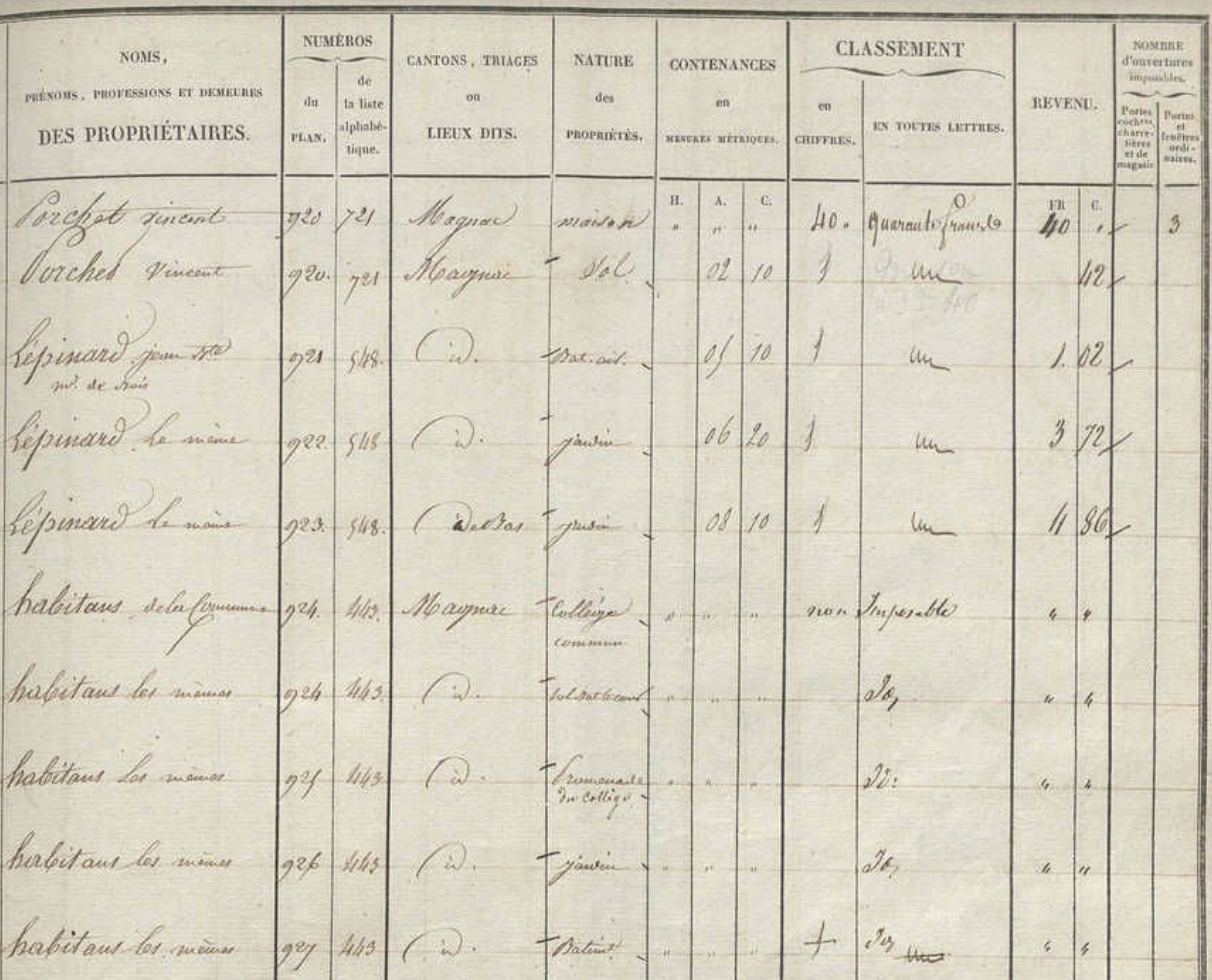 NOMS,
PRÉNOMS, PROFESSIONS ET DEMEURES
DES PROPRIÉTAIRES.
NUMÉROS
du
PLAN.
de
la liste
alphabé-
tique.
CANTONS, TRIAGES
ou
LIEUX DITS.
NATURE
des
PROPRIÉTÉS.
CONTENANCES
en
MESURES MÉTRIQUES.
CLASSEMENT
en
CHIFFRES.
EN TOUTES LETTRES.
REVENU.
NOMBRE
d'ouvertures
imposables.
Portes
cochères,
charre-
tières
et de
magasin
Portes
et
fenêtres
ordi-
naires.
H. A. C. FR C.
Porchet Vincent 920 721 Magnac maison " " " 40. quarante francs 40 " 3
Porchet Vincent 920. 721 Magnac Sol 02 10 1 un 42
Lépinard jean Bte 921 548. id. Bat. 05 10 1 un 1. 02
md. de bois
Lépinard le même 922 548 id. jardin 06 20 1 un 3 72
Lépinard le même 923. 548. id de Bas jardin 08 10 1 un 4 86
habitans de la Commune 924. 443. Magnac Collège " " " non Imposable " "
commun
habitans les mêmes 924 443. id. " " " Id, " "
habitans les mêmes 925 443 id. Promenade " " " Id: " "
du Collège
habitans les mêmes 926 443 id. jardin " " " Id, " "
habitans les mêmes 927 443 id. Batimt " " " + Id, un " "